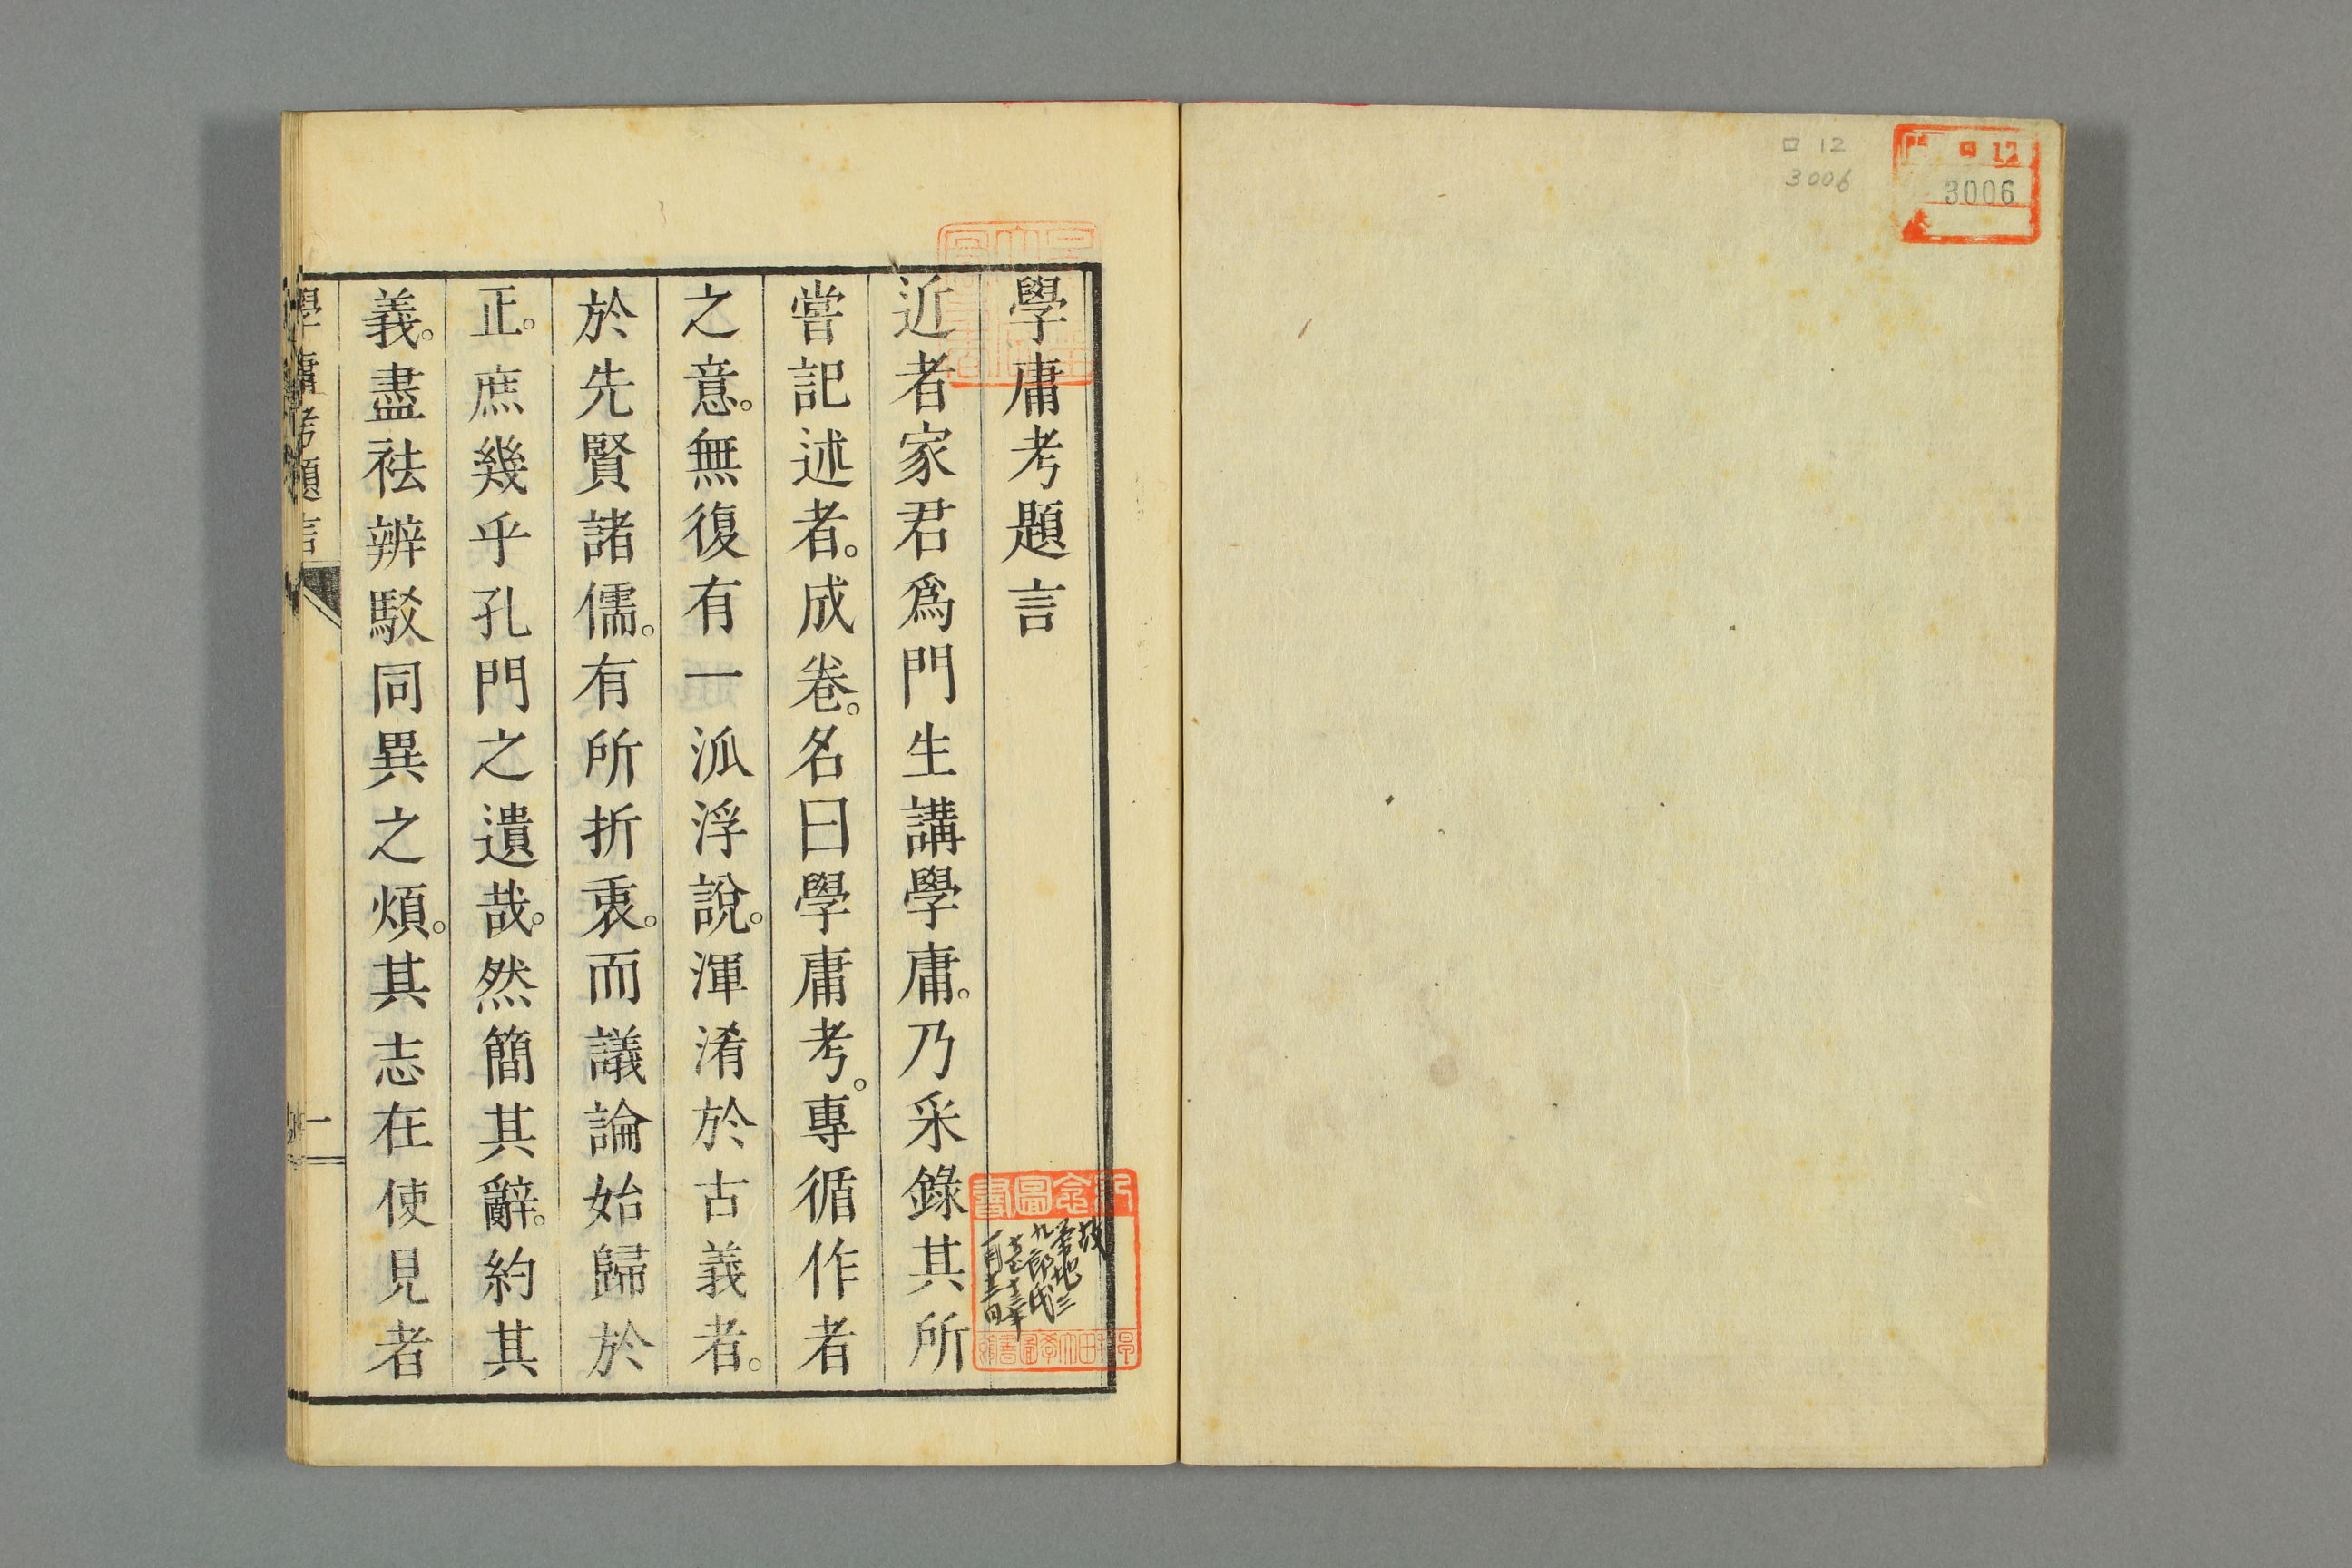 ロ 12
3006
門 ロ 12
3006
學庸考題言
近者家君爲門生講學庸。乃采錄其所
嘗記述者。成卷。名曰學庸考。專循作者
之意。無復有一派浮說。渾淆於古義者。
於先賢諸儒。有所折衷。而議論始歸於
正。庶幾乎孔門之遺哉。然簡其辭。約其
義。盡祛辨駁同異之煩。其志在使見者
學庸考題言
一